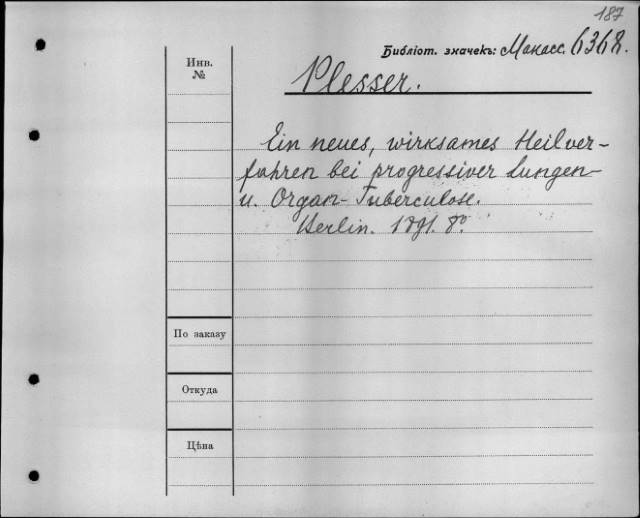 187
Библіот. значекъ: Макасс. 6368.
Инв.
№
Plesser.
Ein neues, wirksames Heilver-
fahren bei progressiver Lungen-
u. Organ-Tuberculose.
Berlin. 1891. 8º.
По заказу
Откуда
Цѣна